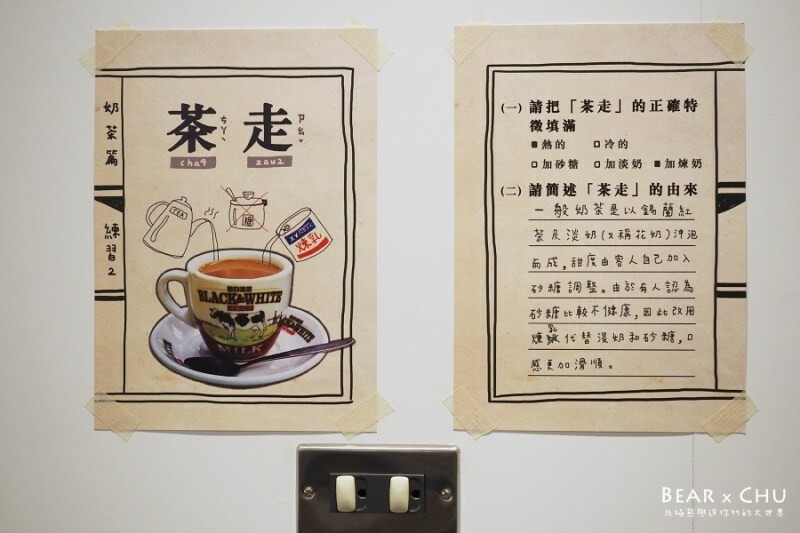 奶茶篇
練習2
茶ㄔㄚˊ走ㄗㄡˇ
cha4 zau2
TEA
糖
煉乳
BLACK&WHITE
MILK
(一) 請把「茶走」的正確特
徵填滿
■熱的 □冷的
□加砂糖 □加淡奶 ■加煉奶
(二) 請簡述「茶走」的由來
一般奶茶是以錫蘭紅
茶及淡奶(又稱花奶)沖泡
而成,甜度由客人自己加入
砂糖調整。由於有人認為
砂糖比較不健康,因此改用
煉乳代替淡奶和砂糖,口
感更加滑順。
BEAR x CHU